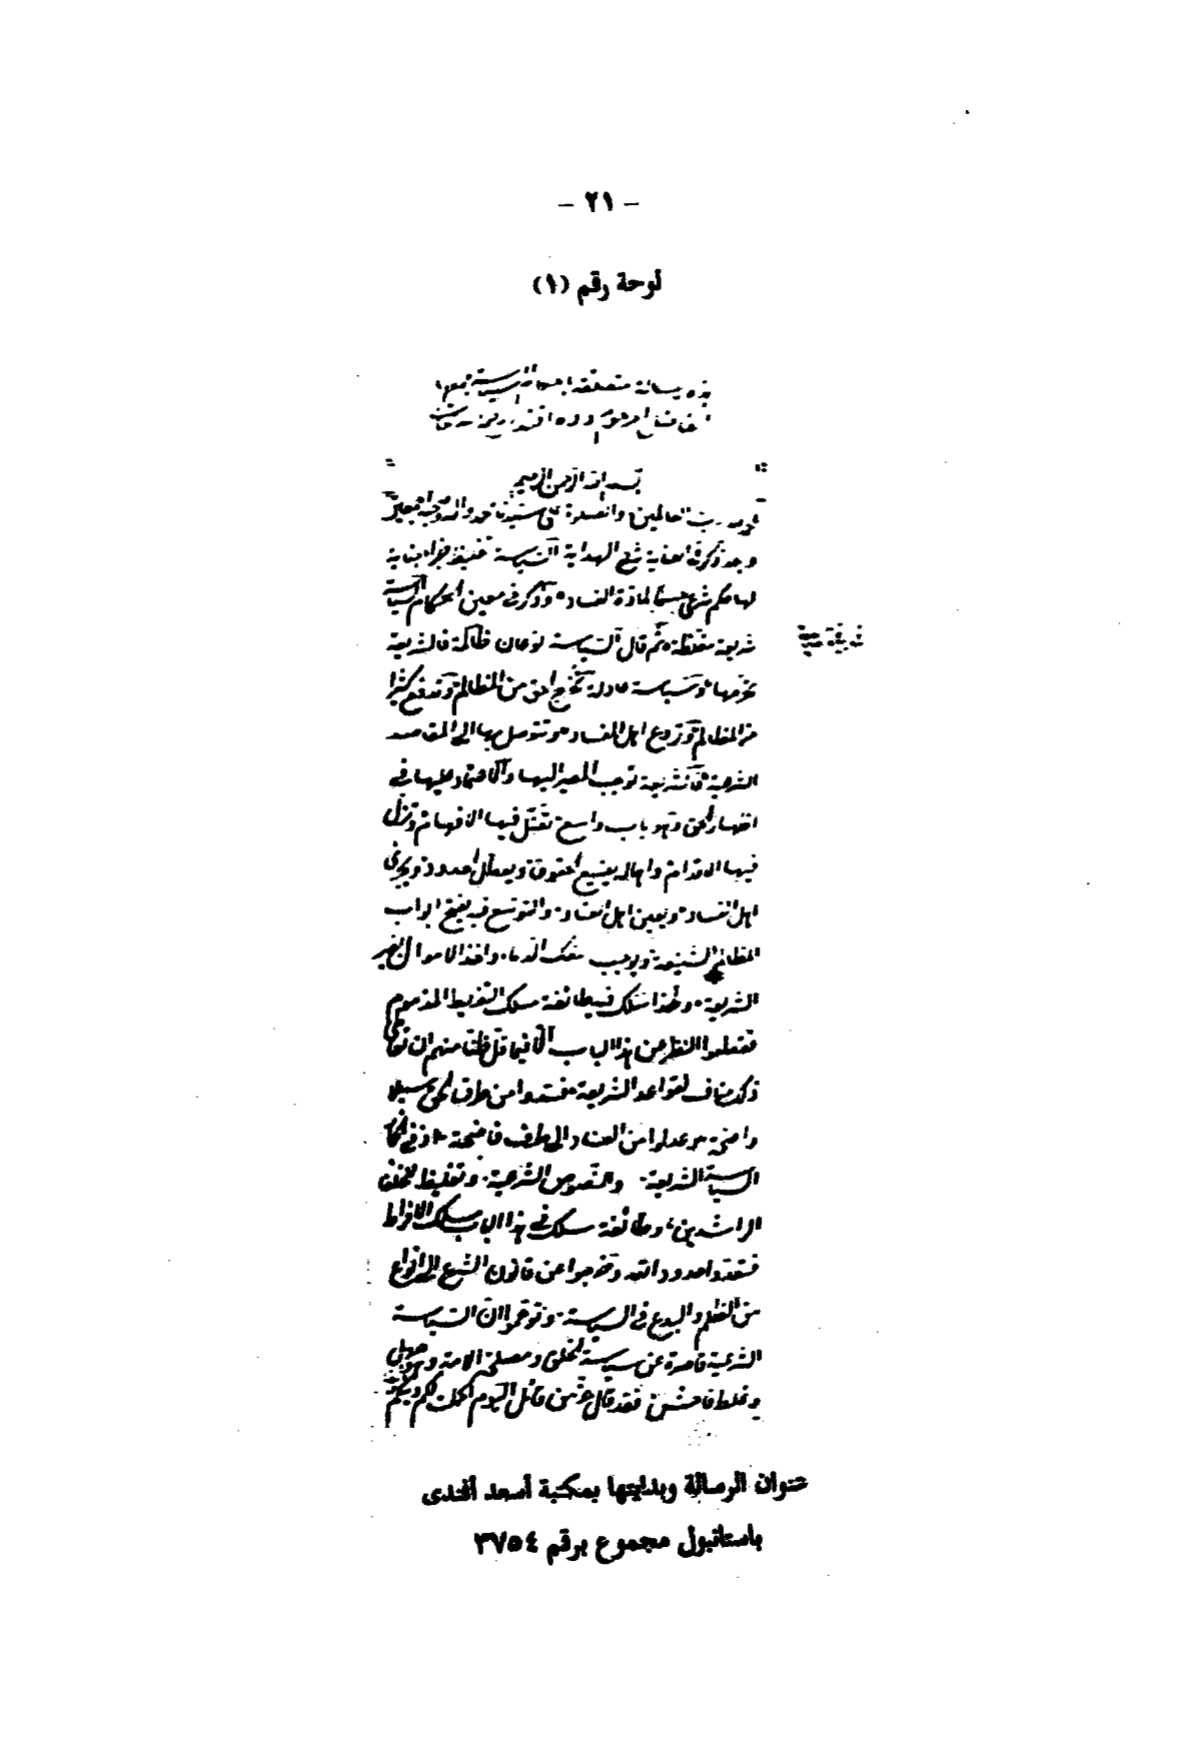 - ٢١ -
لوحة رقم (١)
هذه رسالة متعلقة باحوال السياسة جمعها
المرحوم دده افندى
بسم الله الرحمن الرحيم
الحمد لله رب العالمين والصلوة على سيدنا محمد واله وصحبه اجمعين
وبعد ذكر فى العناية شرح الهداية السياسة تغليظ جزاء جناية
لها حكم شرعى حسما لمادة الفساد وذكر فى معين الحكام السياسة
شريعة مغلظة ثم قال السياسة نوعان ظالمة فالشريعة
تحرمها وسياسة عادلة تخرج الحق من المظالم وتدفع كثيرا
من المظالم وتردع اهل الفساد وتتوصل بها الى المقاصد
الشرعية فالشريعة توجب المصير اليها والاعتماد عليها فى
اظهار الحق وهو باب واسع تضل فيها الافهام وتزل
فيها الاقدام واهاله يضيع الحقوق ويعطل الحدود ويجرئ
اهل الفساد ويعين اهل العناد والتوسع فيه يفتح ابواب
المظالم الشنيعة ويوجب سفك الدماء واخذ الاموال بغير
الشريعة ولهذا سلك فيه طائفة مسلك التفريط المذموم
فقطعوا النظر عن هذا الباب الا فيما قل ظنا منهم ان تعاطى
ذلك مناف لقواعد الشريعة فسدوا من طرق الحق سبيلا
واضحة وعدلوا من العناد الى طرف فاضحة اذ فى انكار
السياسة الشريعة والنصوص الشرعية وتغليط للخلفاء
الراشدين وطائفة سلك فى هذا الباب مسلك الافراط
فتعدوا حدود الله وخرجوا عن قانون الشرع الى انواع
من الظلم والبدع فى السياسة وتوهموا ان السياسة
الشرعية قاصرة عن سياسة الخلق ومصلحة الامة وهو جهل
وغلط فاحش فقد قال عز من قائل اليوم اكملت لكم دينكم
عنوان الرسالة وبدايتها بمكتبة أسعد أفندى
باستانبول مجموع برقم ٣٧٥٤